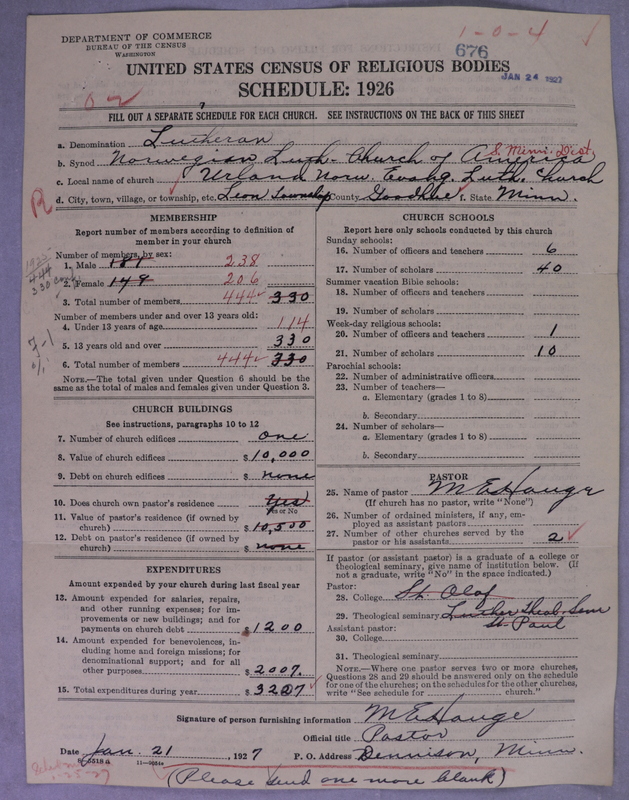 DEPARTMENT OF COMMERCE
BUREAU OF THE CENSUS
WASHINGTON
1-0-4
676
JAN 24 1927
UNITED STATES CENSUS OF RELIGIOUS BODIES
SCHEDULE: 1926
FILL OUT A SEPARATE SCHEDULE FOR EACH CHURCH. SEE INSTRUCTIONS ON THE BACK OF THIS SHEET
a. Denomination Lutheran
b. Synod Norwegian Luth. Church of America S. Minn. Dist.
c. Local name of church Urland Norw. Evang. Luth. Church
d. City, town, village, or township, etc. Leon Township County Goodhue f. State Minn.
R
MEMBERSHIP
Report number of members according to definition of
member in your church
Number of members, by sex:
1. Male 181 238
2. Female 149 206
3. Total number of members 444 330
Number of members under and over 13 years old:
4. Under 13 years of age 114
5. 13 years old and over 330
6. Total number of members 444 330
NOTE.—The total given under Question 6 should be the
same as the total of males and females given under Question 3.
CHURCH BUILDINGS
See instructions, paragraphs 10 to 12
7. Number of church edifices One
8. Value of church edifices $ 10,000
9. Debt on church edifices $ none
10. Does church own pastor's residence Yes
Yes or No
11. Value of pastor's residence (if owned by
church) $ 10,500
12. Debt on pastor's residence (if owned by
church) $ none
EXPENDITURES
Amount expended by your church during last fiscal year
13. Amount expended for salaries, repairs,
and other running expenses; for im-
provements or new buildings; and for
payments on church debt $ 1200
14. Amount expended for benevolences, in-
cluding home and foreign missions; for
denominational support; and for all
other purposes $ 2007.
15. Total expenditures during year $ 3207
CHURCH SCHOOLS
Report here only schools conducted by this church
Sunday schools:
16. Number of officers and teachers 6
17. Number of scholars 40
Summer vacation Bible schools:
18. Number of officers and teachers
19. Number of scholars
Week-day religious schools:
20. Number of officers and teachers 1
21. Number of scholars 10
Parochial schools:
22. Number of administrative officers
23. Number of teachers—
a. Elementary (grades 1 to 8)
b. Secondary
24. Number of scholars—
a. Elementary (grades 1 to 8)
b. Secondary
PASTOR
25. Name of pastor M E Hauge
(If church has no pastor, write "None")
26. Number of ordained ministers, if any, em-
ployed as assistant pastors
27. Number of other churches served by the
pastor or his assistants 2
If pastor (or assistant pastor) is a graduate of a college or
theological seminary, give name of institution below. (If
not a graduate, write "No" in the space indicated.)
Pastor:
28. College St. Olaf
29. Theological seminary Luther Theol. Sem
St. Paul
Assistant pastor:
30. College
31. Theological seminary
NOTE.—Where one pastor serves two or more churches,
Questions 28 and 29 should be answered only on the schedule
for one of the churches; on the schedules for the other churches,
write "See schedule for church."
Signature of person furnishing information M E Hauge
Official title Pastor
Date Jan. 21, 1927 P. O. Address Dennison, Minn.
(Please send one more blank)